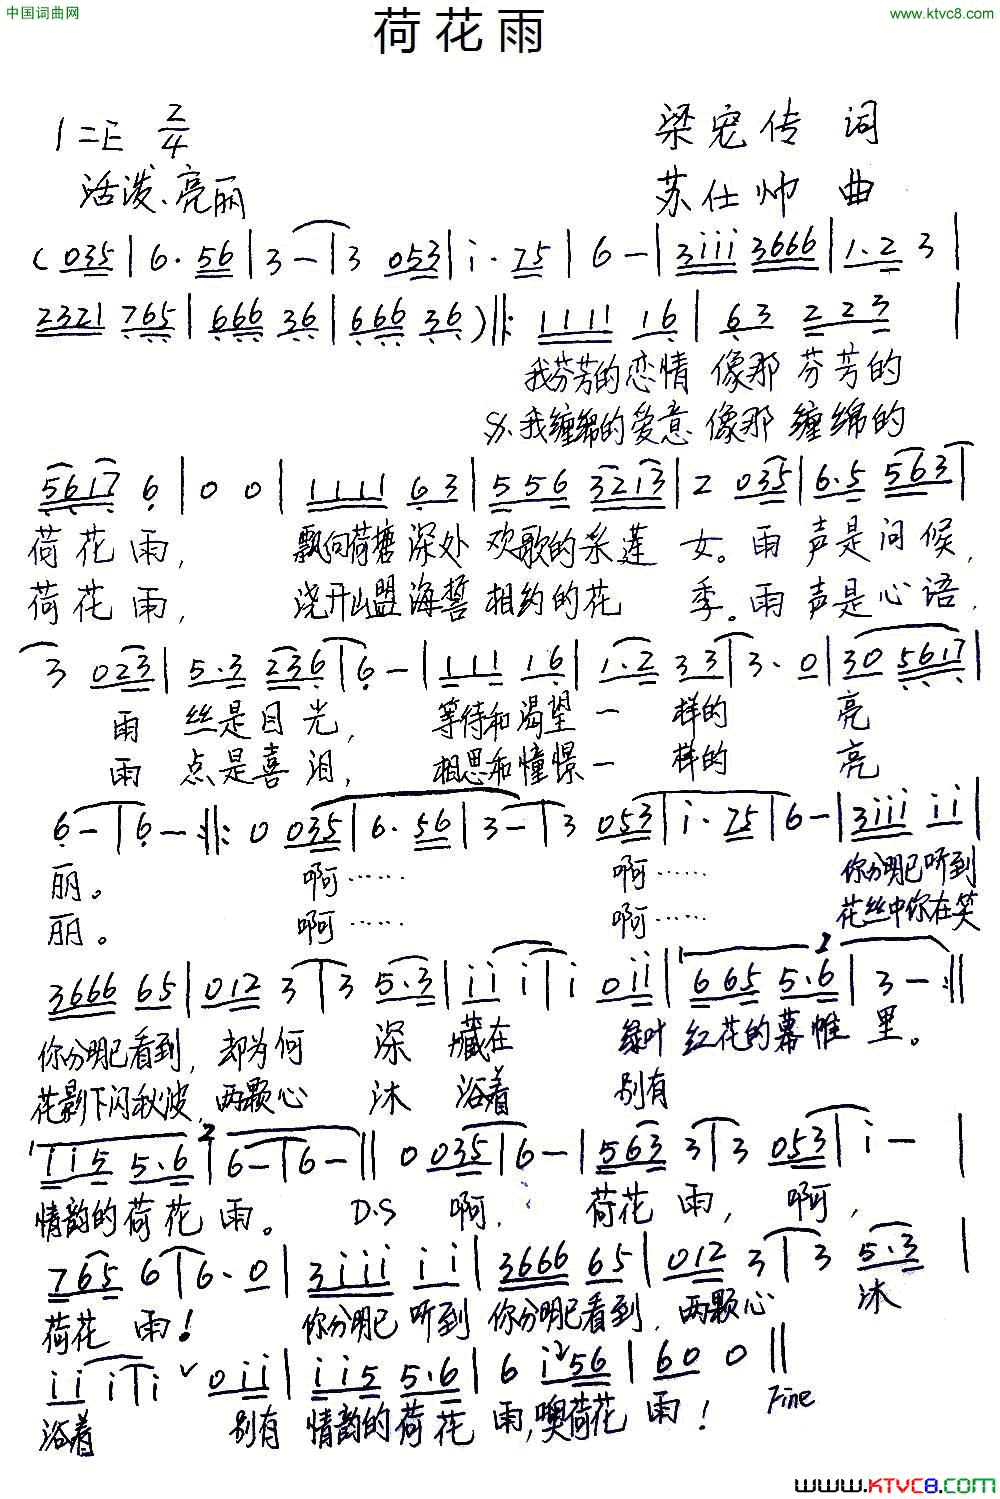 中国词曲网
www.ktvc8.com
荷花雨
1=E 2/4
活泼、亮丽
梁宠传 词
苏仕帅 曲
( 035 | 6· 56 | 3 — | 3 053 | i· 75 | 6 — | 3iii 3666 | 1·2 3 |
2321 765 | 666 36 | 666 36 ) ‖: 1111 16 | 63 223 |
我芬芳的恋情 像那 芬芳的
S. 我缠绵的爱意 像那 缠绵的
5617 6 | 0 0 | 1111 63 | 556 3213 | 2 035 | 6·5 563 |
荷花雨, 飘向荷塘深处 欢歌的采莲 女。雨 声是问候,
荷花雨, 浇开山盟海誓 相约的花 季。雨 声是心语,
3 023 | 5·3 236 | 6 — | 111 16 | 1·2 33 | 3· 0 | 30 5617 |
雨 丝是目光, 等待和渴望一 样的 亮
雨 点是喜泪, 相思和憧憬一 样的 亮
6 — | 6 — :‖: 0 035 | 6· 56 | 3 — | 3 053 | i· 75 | 6 — | 3iii ii |
丽。 啊…… 啊…… 你分明已听到
丽。 啊…… 啊…… 花丝中你在笑
3666 65 | 012 3 | 3 5·3 | ii i | i 0ii | 1 665 5·6 | 2 3 — :‖
你分明已看到, 却为何 深 藏在 绿叶 红花的幕帷 里。
花影下闪秋波, 两颗心 沐 浴着 别有
1 ii5 5·6 | 2 6 — | 6 — ‖ 0 035 | 6 — | 563 3 | 3 053 | i — |
情韵的荷花 雨。 D.S 啊, 荷花 雨, 啊,
765 6 | 6· 0 | 3iii ii | 3666 65 | 012 3 | 3 5·3 |
荷花 雨! 你分明已 听到 你分明已看到, 两颗心 沐
ii i | i ˅ 0ii | ii5 5·6 | 6 i˅56 | 60 0 ‖
浴着 别有 情韵的荷花 雨,噢荷花 雨! Fine
www.KTVC8.com